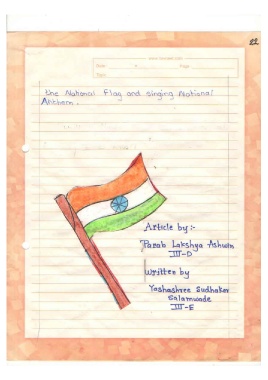 22
the National Flag and singing National
Anthem.
Article by :-
Parab Lakshya Ashwin
III-D
Written by
Yashashree Sudhakar
Salamwade
III-E